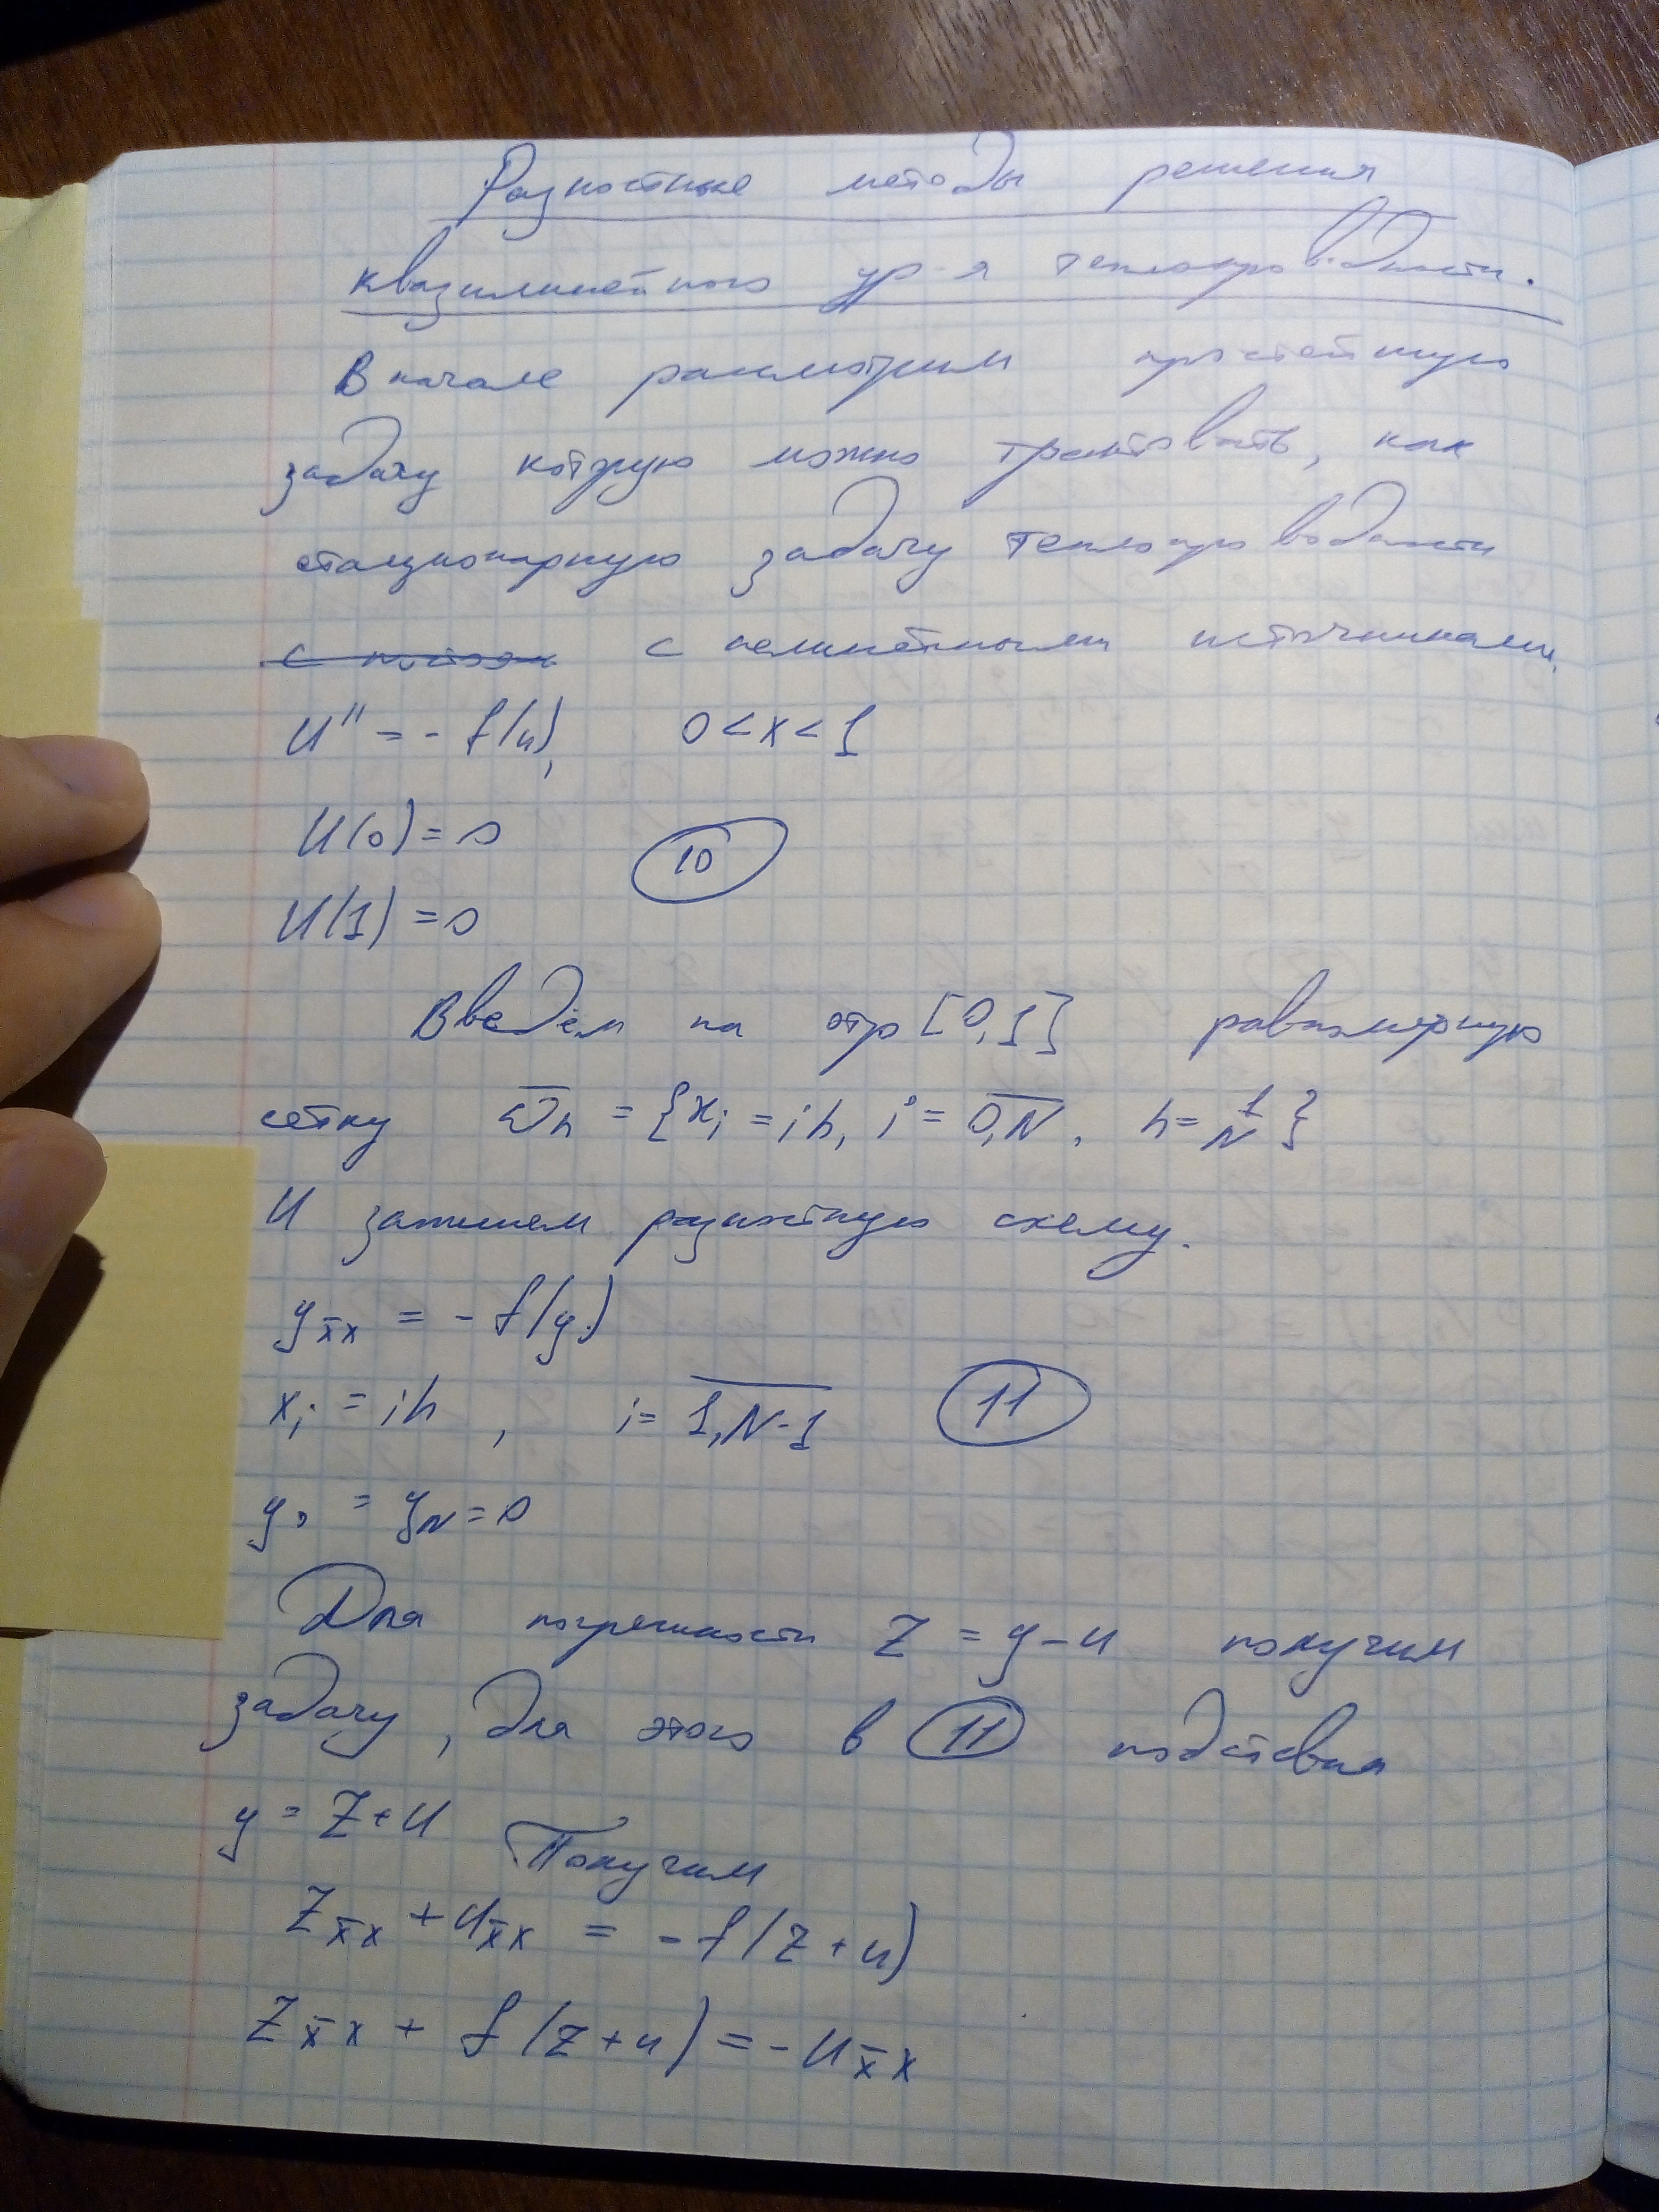 Разностные методы решения
квазилинейного ур-я теплопроводности.
В начале рассмотрим простейшую
задачу которую можно трактовать, как
стационарную задачу теплопроводности
с нелинейными источниками.
u'' = - f(u), 0 < x < 1
u(0) = 0
(10)
u(1) = 0
Введём на отр [0,1] равномерную
сетку ω̄h = {xi = ih, i = 0,N, h = 1/N}
И запишем разностную схему.
yx̄x = - f(yi)
xi = ih, i = 1,N-1 (11)
y0 = yN = 0
Для погрешности z = y - u получим
задачу, для этого в (11) подставим
y = z + u Получим
zx̄x + ux̄x = - f(z + u)
zx̄x + f(z + u) = - ux̄x